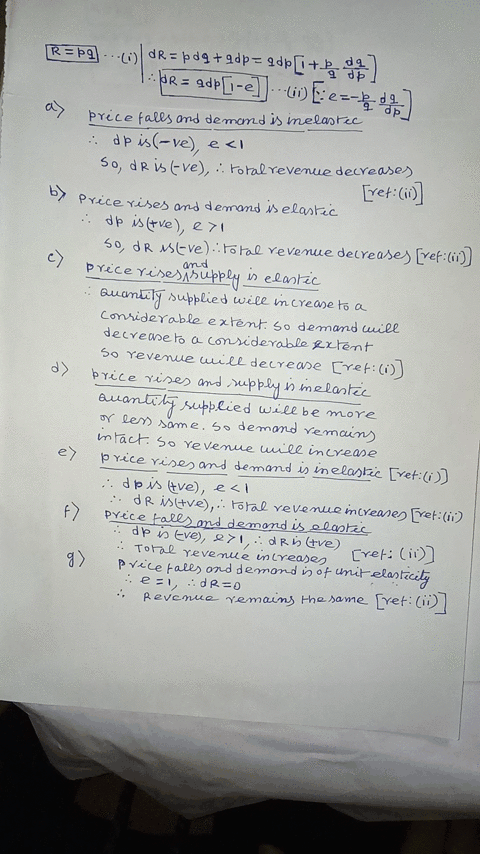 R = pq ...(i) | dR = pdq + qdp = qdp[1 + p/q dq/dp]
∴ dR = qdp[1-e] ...(ii) [∵ e = -p/q dq/dp]
a) price falls and demand is inelastic
∴ dp is (-ve), e < 1
So, dR is (-ve), ∴ total revenue decreases
[ref:(ii)]
b) price rises and demand is elastic
∴ dp is (+ve), e > 1
So, dR is (-ve) ∴ total revenue decreases [ref:(ii)]
c) price rises and supply is elastic
∴ quantity supplied will increase to a
considerable extent. So demand will
decrease to a considerable extent
So revenue will decrease [ref:(i)]
d) price rises and supply is inelastic
quantity supplied will be more
or less same. So demand remains
intact. So revenue will increase
e) price rises and demand is inelastic [ref:(i)]
∴ dp is (+ve), e < 1
∴ dR is (+ve), ∴ total revenue increases [ref:(ii)
f) price falls and demand is elastic
∴ dp is (-ve), e > 1, ∴ dR is (+ve)
∴ Total revenue increases [ref:(ii)]
g) price falls and demand is of unit elasticity
∴ e = 1, ∴ dR = 0
∴ Revenue remains the same [ref:(ii)]